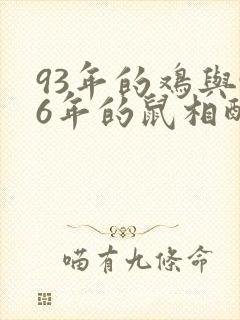 93年的鸡與
6年的鼠相
喵有九條命